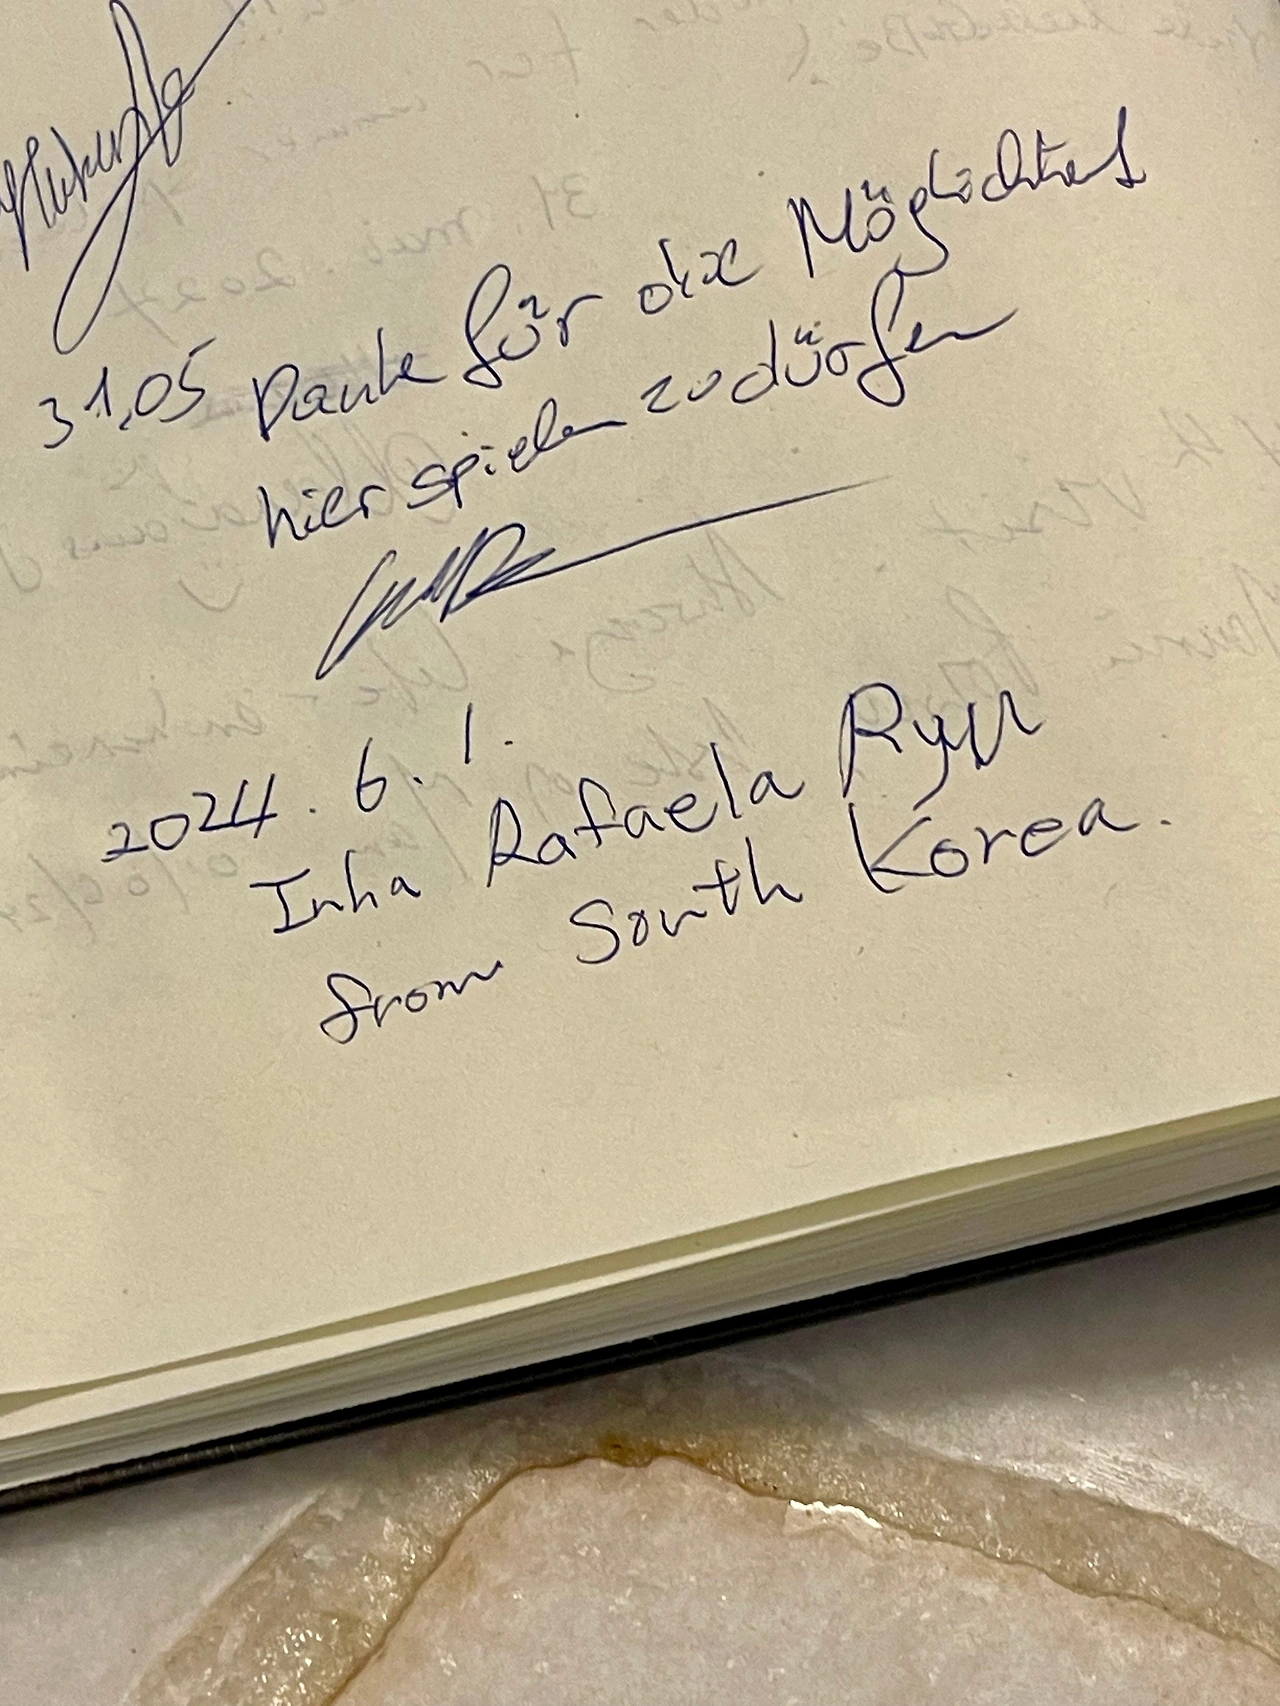 31,05 Danke für die Möglichkeit
hier spielen zu dürfen
2024. 6. 1.
Inha Rafaela Ryu
from South Korea.